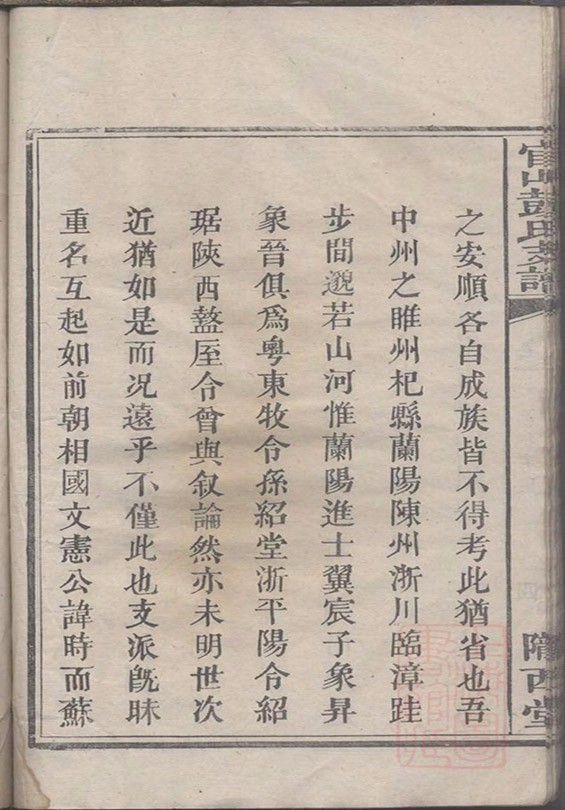 官山彭氏宗譜
之安順各自成族皆不得考此猶省也吾
中州之睢州杞縣蘭陽陳州浙川臨漳跬
步間邈若山河惟蘭陽進士翼宸子象昇
象晉俱為粵東牧令孫紹堂浙平陽令紹
琚陝西盩厔令曾與叙論然亦未明世次
近猶如是而况遠乎不僅此也支派既昧
重名互起如前朝相國文憲公諱時而蘇
隴西堂